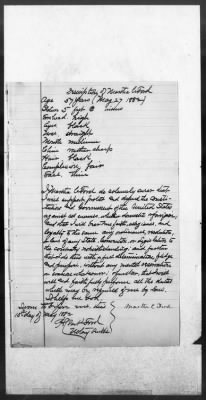 Description of Martha C Cook
Age 57 years (May 27 1882)
Stature 5 feet 2 inches
Forehead high
Eyes Black
Nose straight
Mouth medium
Chin rather sharp
Hair Dark
Complexion fair
Face Thin
I Martha C Cook do solemnly swear that
I will support, protect and defend the Consti-
tution and Government of the United States
against all enemies, whether domestic or foreign,
and that I will bear true faith, allegiance and
loyalty to the same any ordinance, resolution,
or law of any State Convention or Legislature to
the contrary notwithstanding. and further
that I do this with a full determination, pledge
and purpose, without any mental reservation
or evasion whatsoever. And further, that I will
well and faithfully perform all the duties
which may be required of me by law.
So help me God
Sworn to before me this
15 day of July 1882
Martha C Cook
Notary Public